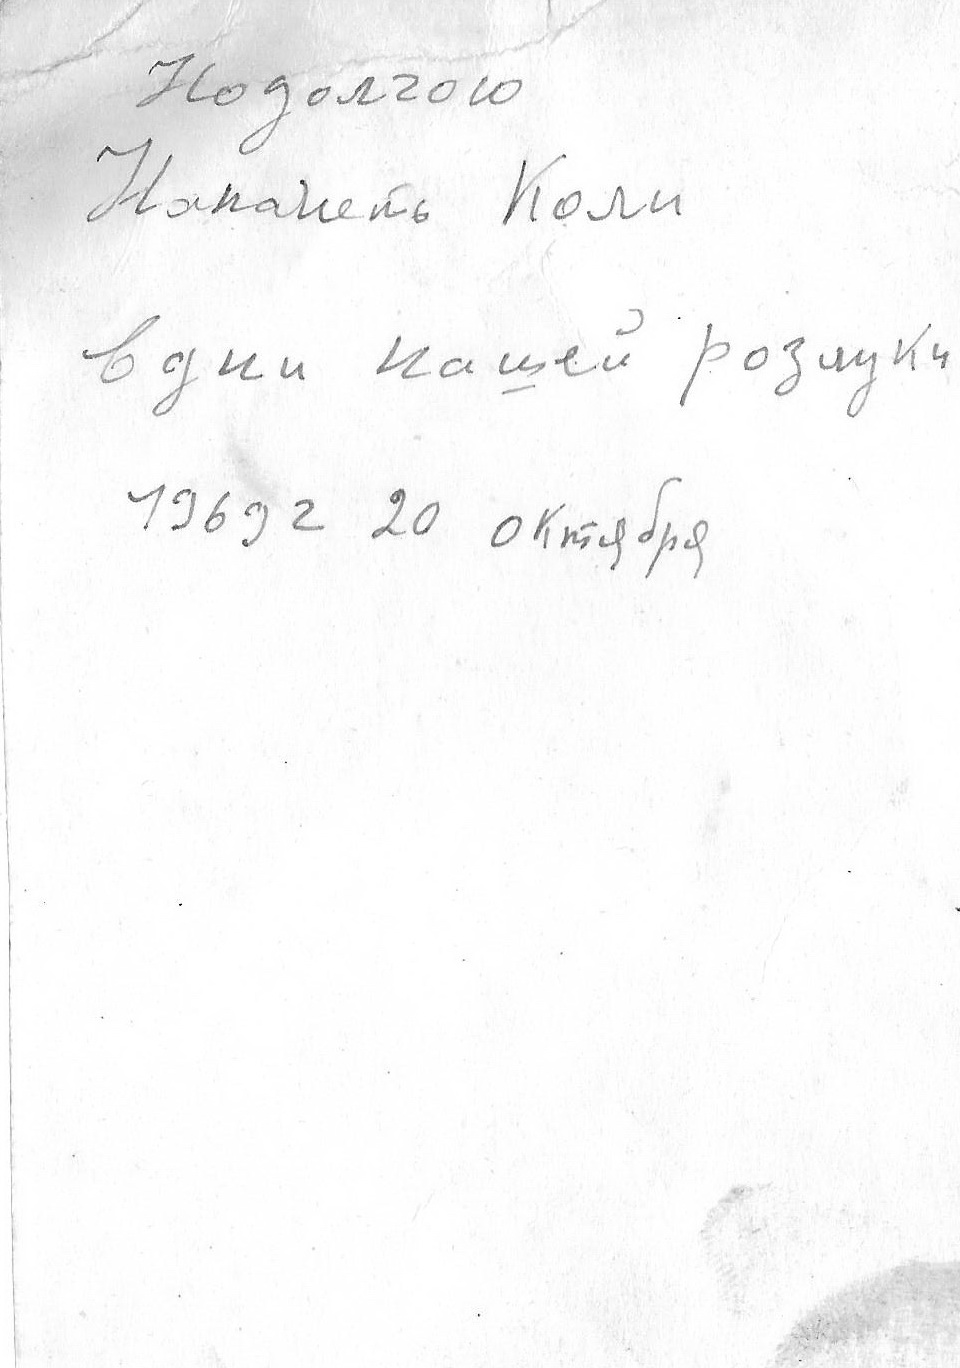 Нодолгою
Напаметь Коли
Вдни нашей розлуки
1969 г 20 октября